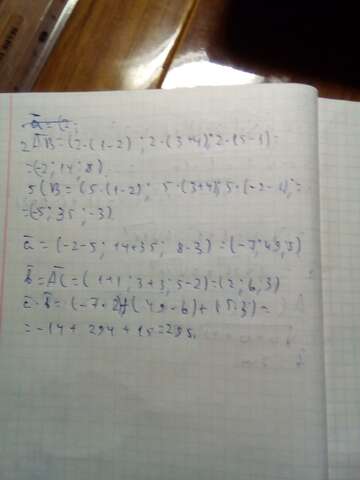 2AB = (2·(1-2); 2·(3+4); 2·(5-1)
=(-2; 14; 8)
5CB = (5·(1-2); 5·(3+4); 5·(-2-1)=
=(-5; 35; -3)
a = (-2-5; 14+35; 8-3) = (-7; 49; 3)
b = AC = (1+1; 3+3; 5-2) = (2; 6; 3)
a·b = (-7·2)+(49·6)+(5·3)=
= -14 + 294 + 15 = 295.